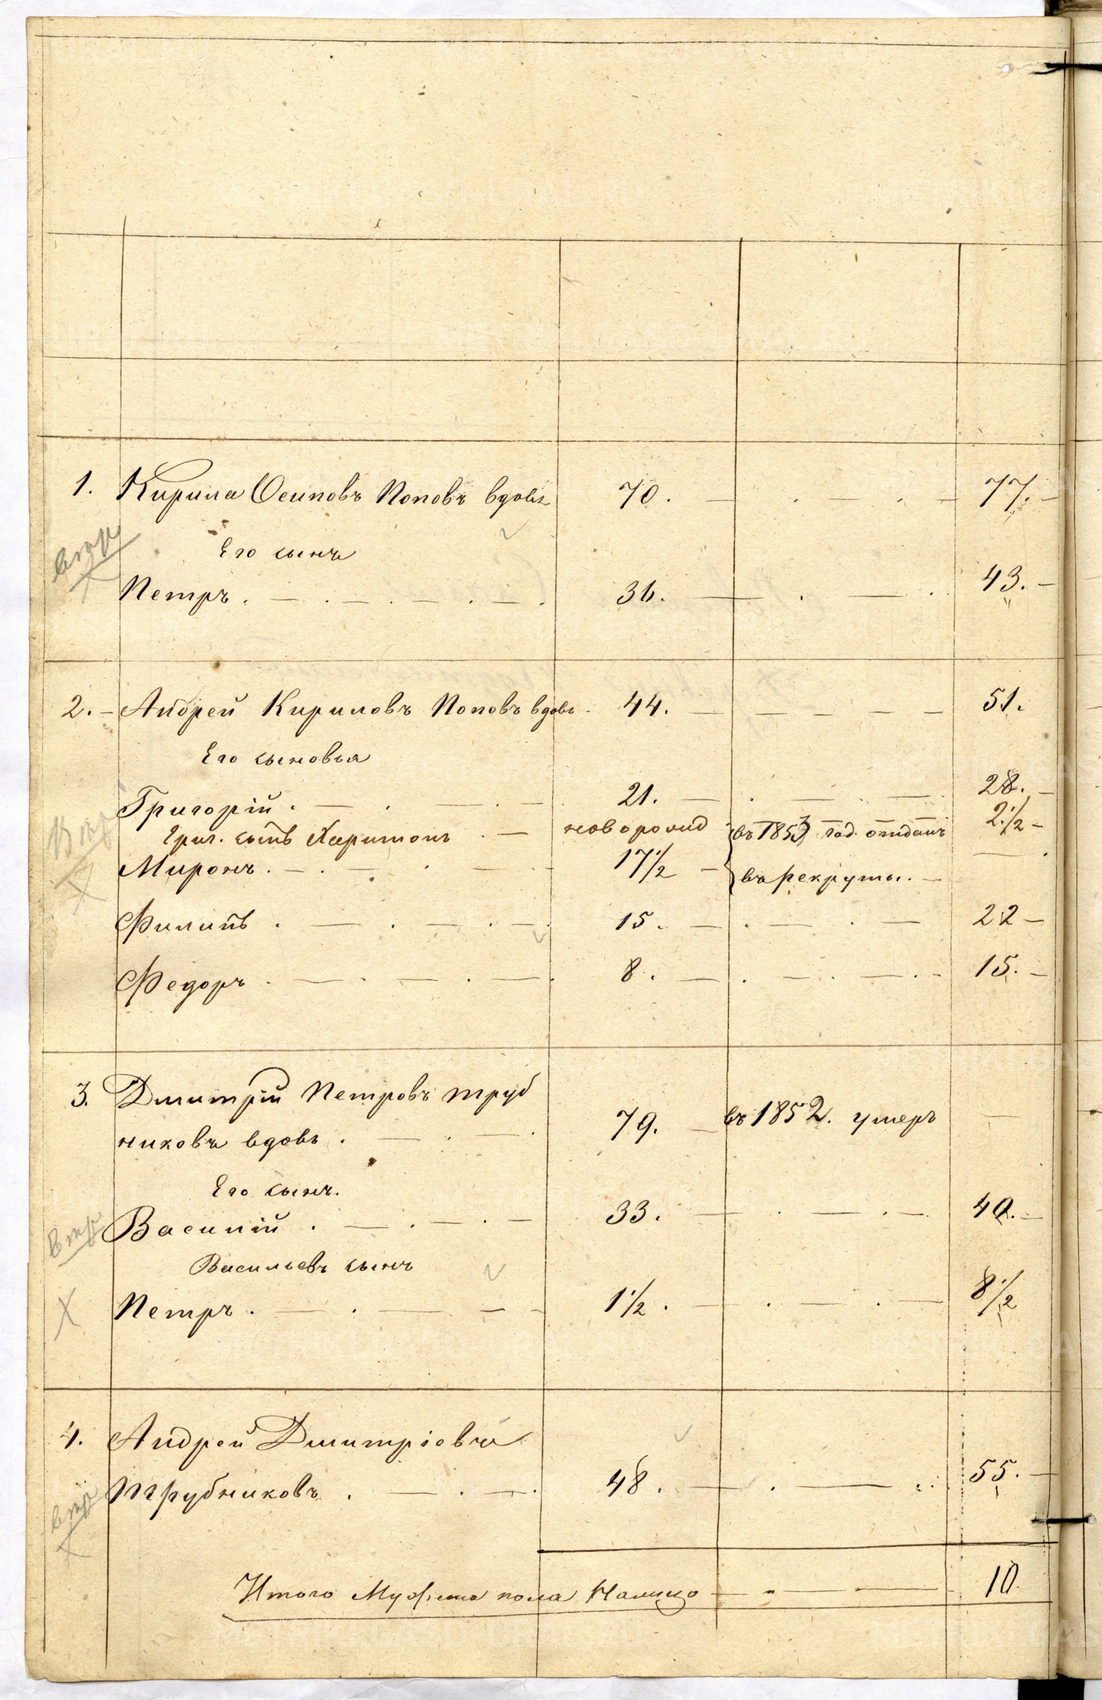 1. Кирила Осиповъ Поповъ вдовъ 70. 77.
Его сынъ
Петръ. 36. 43.
2. Андрей Кириловъ Поповъ вдовъ 44. 51.
Его сыновья
Григорій. 21. 28.
Григ. сынъ Харитонъ новорожд 2 1/2
Миронъ. 17 1/2 въ 1853 год. отданъ
въ рекруты.
Филипъ. 15. 22
Федоръ. 8. 15.
3. Дмитрій Петровъ Труб
никовъ вдовъ. 79. въ 1852. умеръ
Его сынъ.
Василій. 33. 40.
Васильевъ сынъ
Петръ. 1 1/2. 8 1/2
4. Андрей Дмитріевъ
Трубниковъ. 48. 55.
Итого Мужска пола Налицо 10